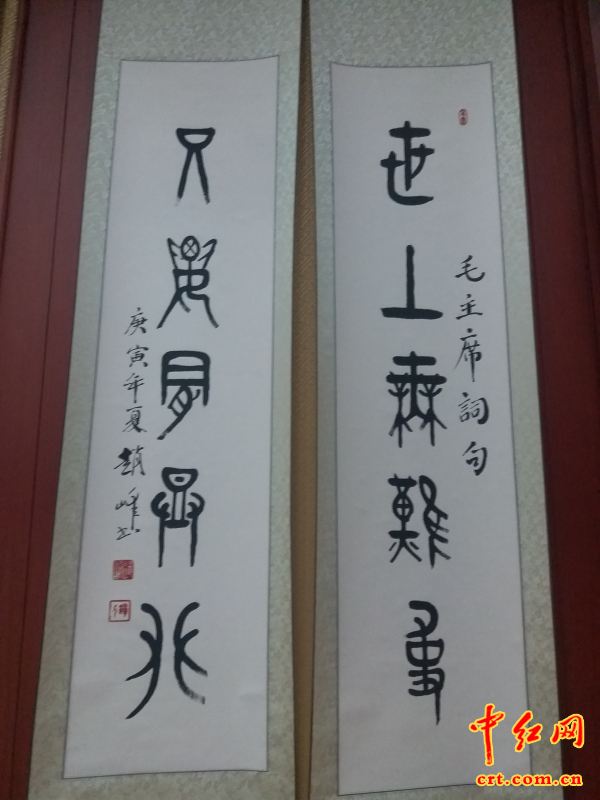 世上無難事
毛主席詞句
只要肯登攀
庚寅年夏趙峰书
中红网
crt.com.cn